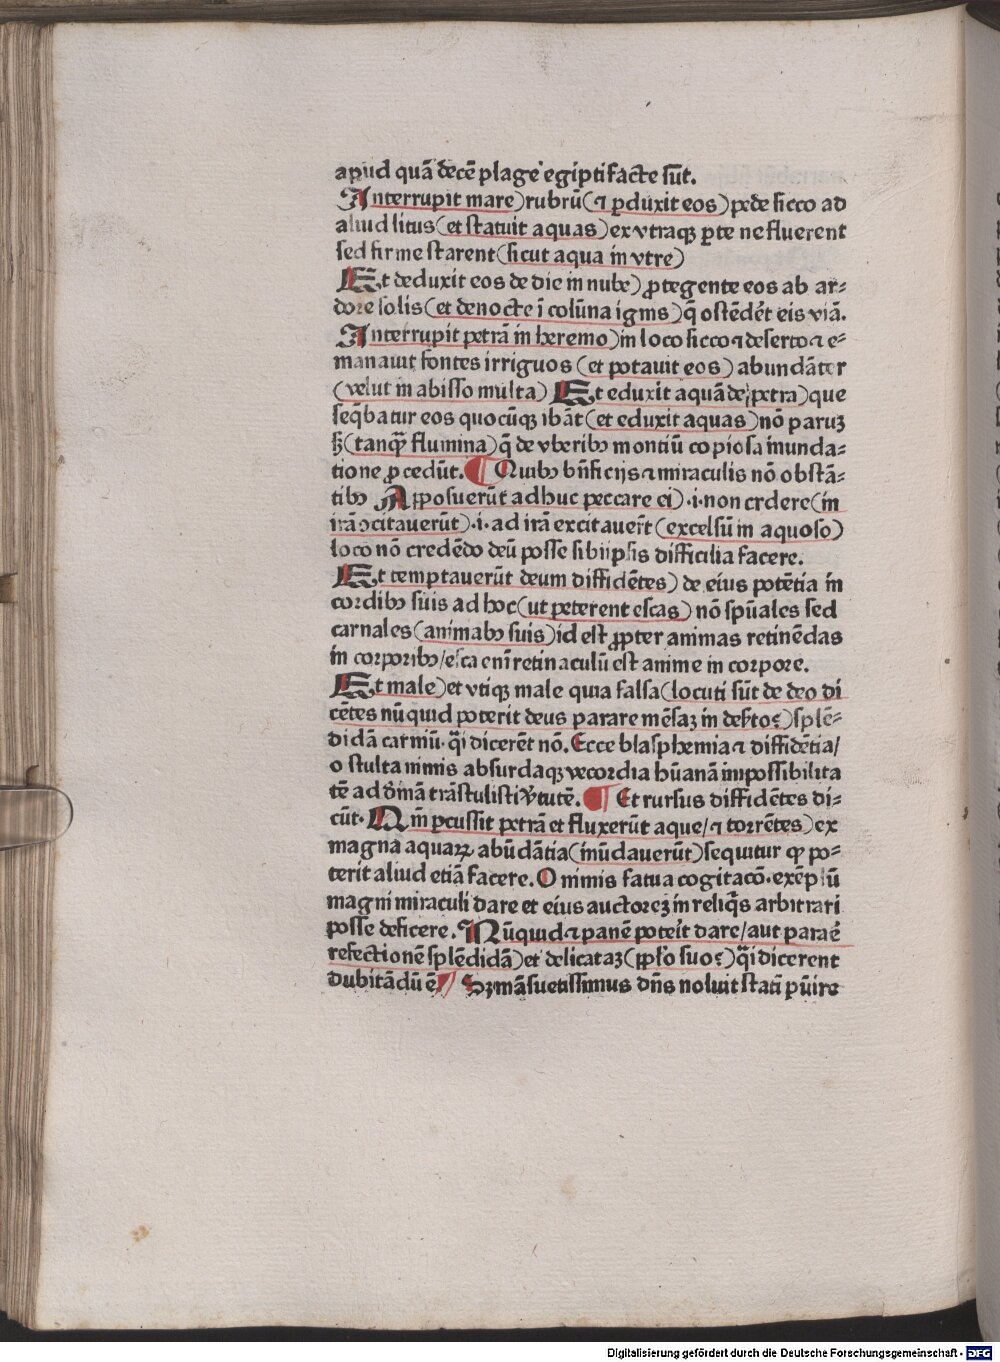 apud quā decē plage egipti facte sūt.
Interrupit mare) rubrū (⁊ ꝑduxit eos) pede sicco ad
aliud litus (et statuit aquas) ex vtraqꝫ ꝑte ne fluerent
sed firme starent (sicut aqua in vtre)
Et deduxit eos de die in nube) ꝓtegente eos ab ar⸗
dore solis (et de nocte ī colūna ignis) q̄ ostēdēt eis viā.
Interrupit petrā in heremo) in loco sicco ⁊ deserto ⁊ e⸗
manauit fontes irriguos (et potauit eos) abundāter
(velut in abisso multa) Et eduxit aquā de petra) que
seq̄batur eos quocūqꝫ ibāt (et eduxit aquas) nō paruꝫ
sꝫ (tanqꝫ flumina) q̄ de vberibꝰ montiū copiosa inunda⸗
tione ꝓcedūt. ¶ Quibꝰ bn̄ficijs ⁊ miraculis nō obstā⸗
tibꝰ Apposuerūt adhuc peccare ei) .i. non crdere (in
irā ꝯcitauerūt) .i. ad irā excitauer̄t (excelsū in aquoso)
loco nō credēdo deū posse sibiipsis difficilia facere.
Et temptauerūt deum diffidētes) de eius potētia in
cordibꝰ suis ad hoc (ut peterent escas) nō spūales sed
carnales (animabꝰ suis) id est ꝓpter animas retinēdas
in corporibꝰ / esca eni retinaculū est anime in corpore.
Et male) et vtiqꝫ male quia falsa (locuti sūt de deo di
cētes nūquid poterit deus parare mēsaꝫ in deẜto?) splē⸗
didā carniū. q̄si dicerēt nō. Ecce blasphemia ⁊ diffidētia /
o stulta nimis absurdaqꝫ vecordia hūanā impossibilita
tē ad dīnā trāstulisti v̄tutē. ¶ Et rursus diffidētes di⸗
cūt. Qm̄ ꝑcussit petrā et fluxerūt aque / ⁊ torrētes) ex
magna aquaꝝ abūdātia (inūdauerūt) sequitur ꝙ po⸗
terit aliud etiā facere. O nimis fatua cogitacō. exēplū
magni miraculi dare et eius auctoreꝫ in reliq̄s arbitrari
posse deficere. Nūquid ⁊ panē poteit dare / aut parae
refectionē splēdidā) et delicataꝫ (ꝓplo suo?) q̄si dicerent
dubitādū ē ¶ Sꝫ māsuetissimus dn̄s noluit stati pūire
Digitalisierung gefördert durch die Deutsche Forschungsgemeinschaft - DFG